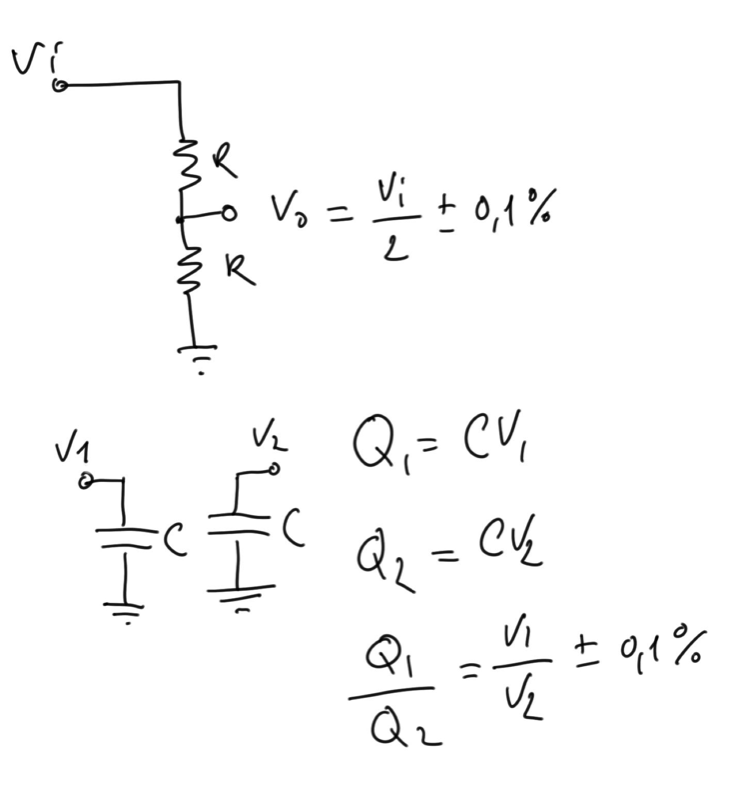 Vi
R
V₀ = Vi/2 ± 0,1%
R
V1
V2
Q₁ = CV₁
C
C
Q₂ = CV₂
Q₁/Q₂ = V1/V2 ± 0,1%